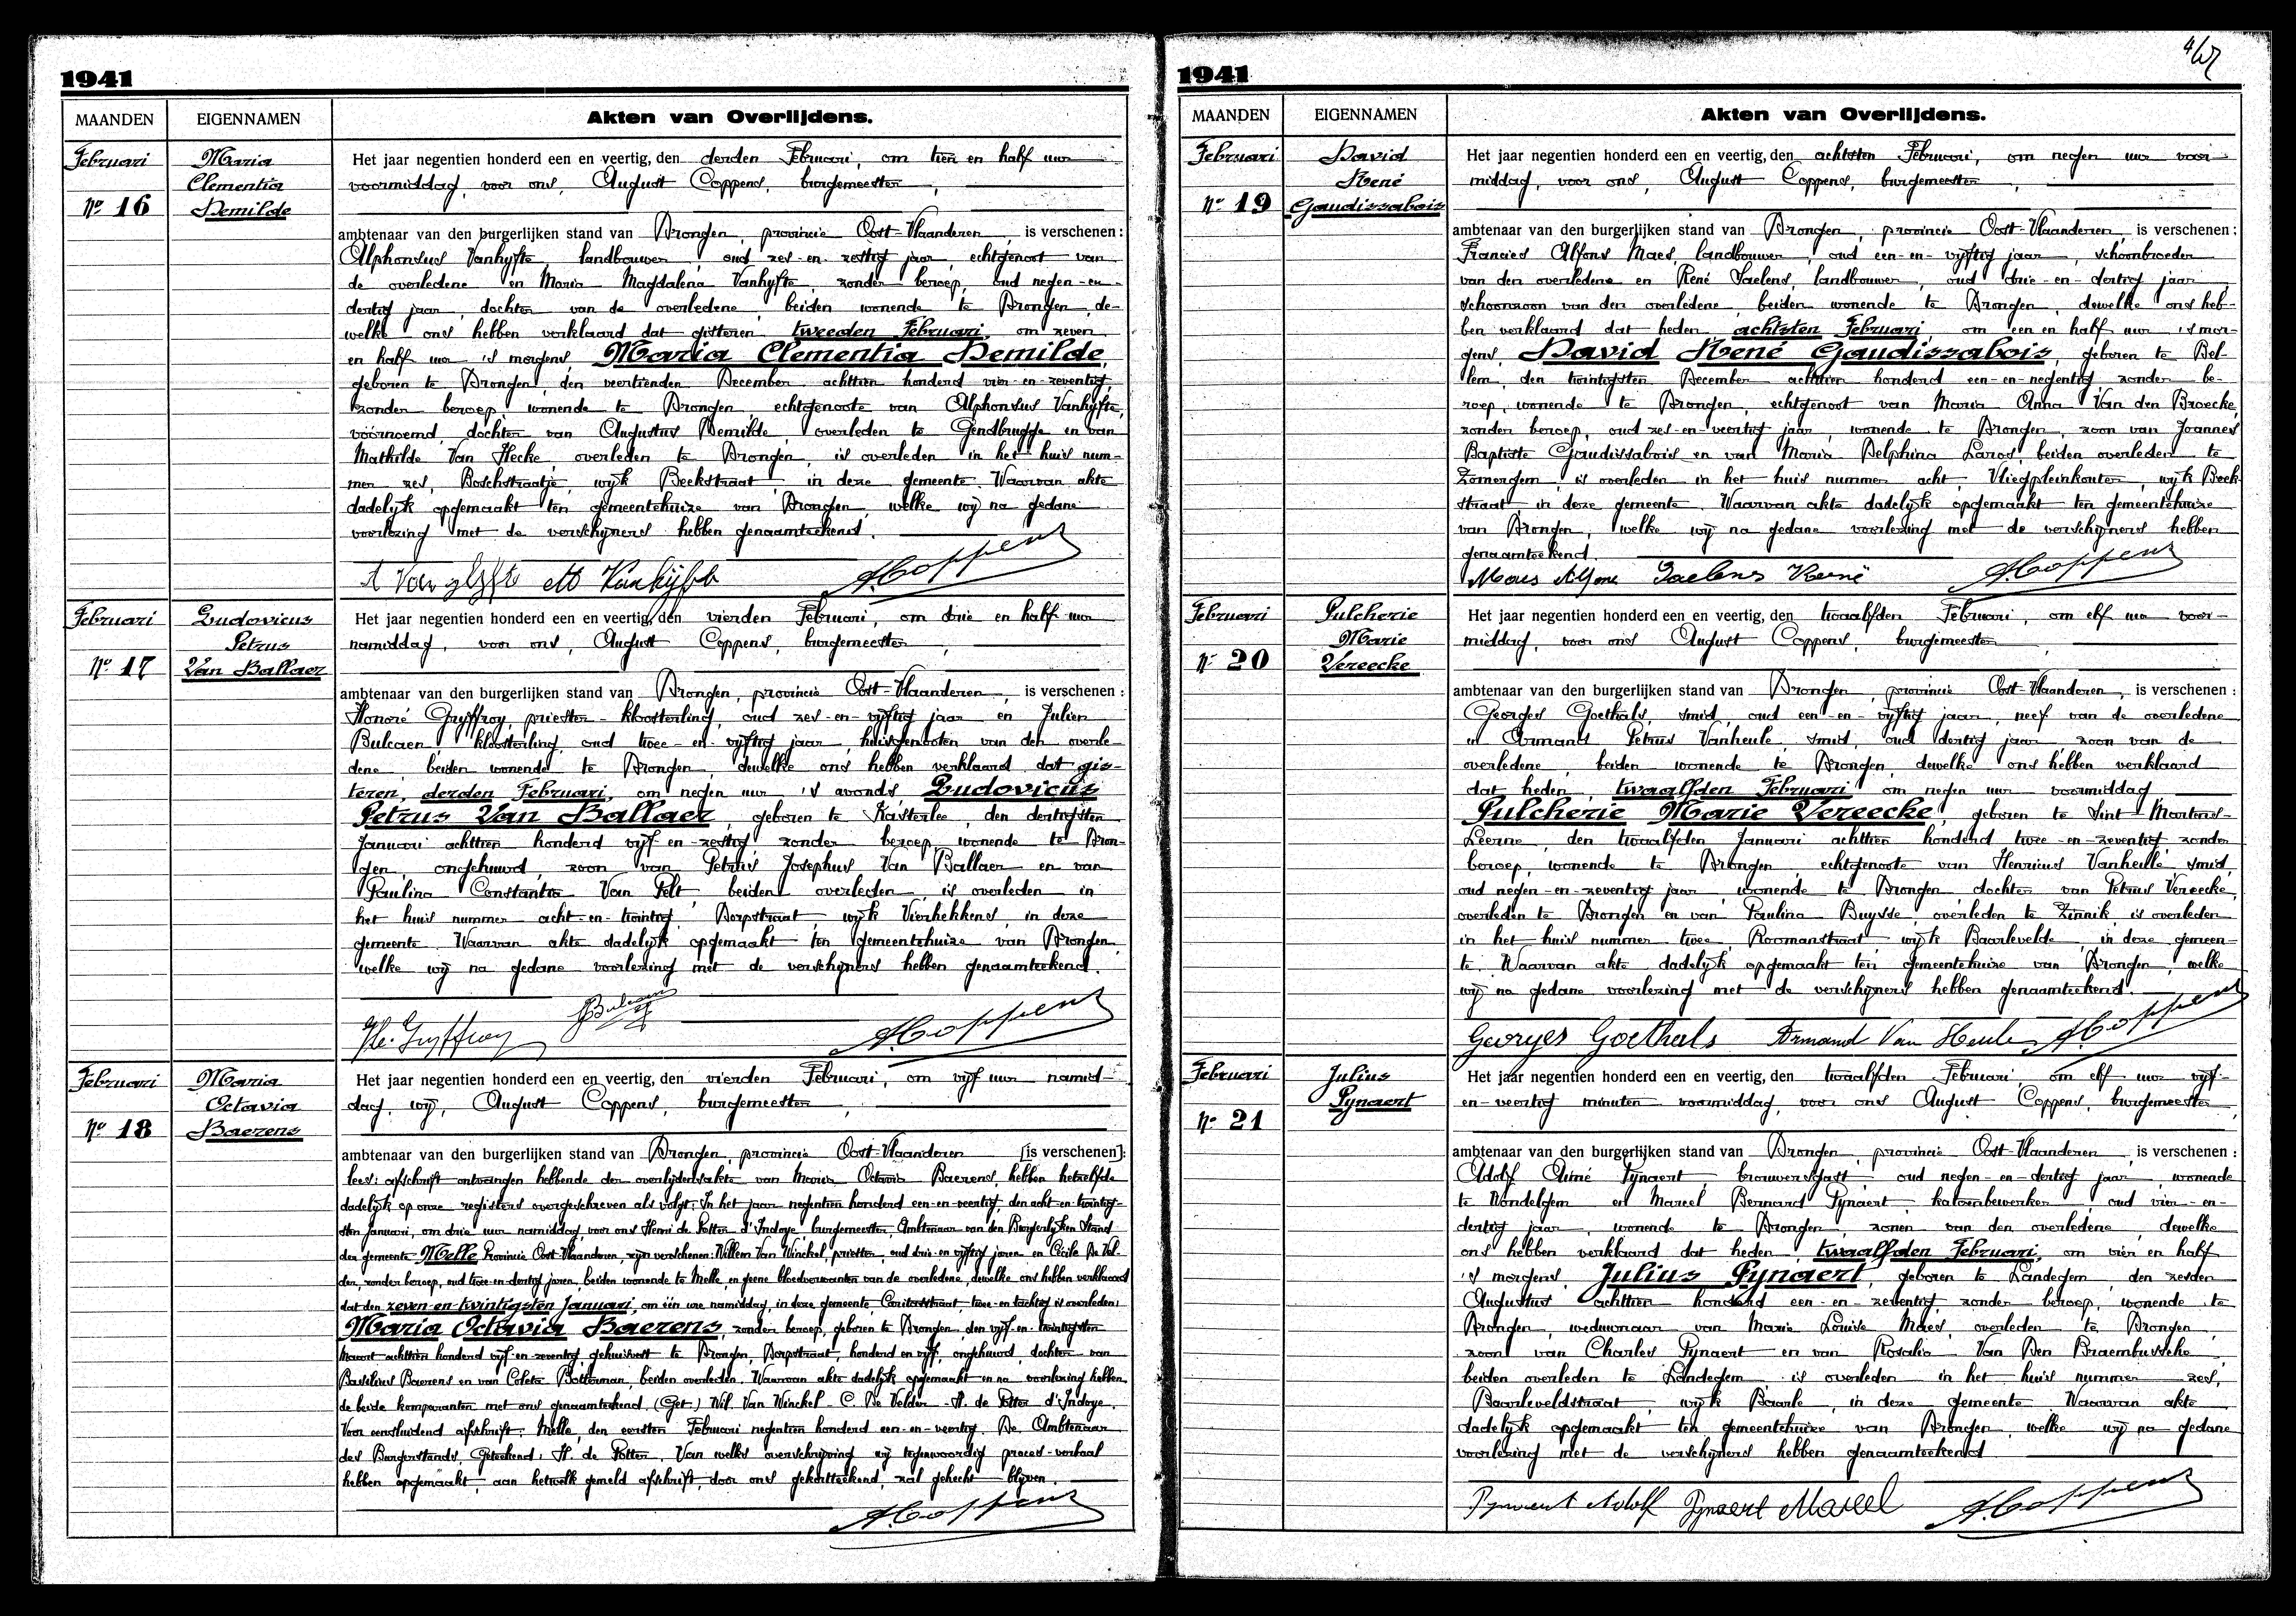 1941
MAANDEN
EIGENNAMEN
Akten van Overlijdens.
Februari
Maria
Clementia
Nº 16
Demilde
Het jaar negentien honderd een en veertig, den derden Februari, om tien en half uur
voormiddag, voor ons, August Coppens, burgemeester,
ambtenaar van den burgerlijken stand van Drongen, provincie Oost-Vlaanderen, is verschenen:
Alphonsus Vanhyfte, landbouwer, oud zes-en-zestig jaar, echtgenoot van
de overledene en Maria Magdalena Vanhyfte, zonder beroep, oud negen-en-
dertig jaar, dochter van de overledene, beiden wonende te Drongen, de-
welke ons hebben verklaard dat gisteren tweeden Februari, om zeven
en half uur 's morgens, Maria Clementia Demilde,
geboren te Drongen, den veertienden December achttien honderd vier-en-zeventig,
zonder beroep, wonende te Drongen, echtgenoote van Alphonsus Vanhyfte,
voornoemd, dochter van Augustus Demilde, overleden te Gendbrugge en van
Mathilde Van Hecke, overleden te Drongen, is overleden in het huis num-
mer zes, Boschstraatje, wijk Beekstraat, in deze gemeente. Waarvan akte
dadelijk opgemaakt ten gemeentehuize van Drongen, welke wij na gedane
voorlezing met de verschijners hebben genaamteekend.
A Vanhyfte M Vanhyfte A. Coppens
Februari
Ludovicus
Petrus
Nº 17
Van Ballaer
Het jaar negentien honderd een en veertig, den vierden Februari, om drie en half uur
namiddag, voor ons, August Coppens, burgemeester,
ambtenaar van den burgerlijken stand van Drongen, provincie Oost-Vlaanderen, is verschenen:
Honoré Gryffroy, priester-kloosterling, oud zes-en-vijftig jaar en Julien
Bulcaen, kloosterling, oud twee-en-vijftig jaar, huisgenooten van den overle-
dene, beiden wonende te Drongen, dewelke ons hebben verklaard dat gis-
teren, derden Februari, om negen uur 's avonds Ludovicus
Petrus Van Ballaer, geboren te Kasterlee, den dertigsten
Januari achttien honderd vijf-en-zestig, zonder beroep, wonende te Dron-
gen, ongehuwd, zoon van Petrus Josephus Van Ballaer en van
Paulina Constantia Van Pelt, beiden overleden, is overleden in
het huis nummer acht-en-twintig, Dorpstraat, wijk Vierhekkens, in deze
gemeente. Waarvan akte dadelijk opgemaakt ten gemeentehuize van Drongen,
welke wij na gedane voorlezing met de verschijners hebben genaamteekend.
Ho. Gryffroy J Bulcaen A. Coppens
Februari
Maria
Octavia
Nº 18
Baerens
Het jaar negentien honderd een en veertig, den vierden Februari, om vijf uur namid-
dag, wij, August Coppens, burgemeester,
ambtenaar van den burgerlijken stand van Drongen, provincie Oost-Vlaanderen [is verschenen]:
lees: afschrift ontvangen hebbende der overlijdensakte van Maria Octavia Baerens, hebben hetzelfde
dadelijk op onze registers overgeschreven als volgt: In het jaar negentien honderd een-en-veertig, den acht-en-twintig-
sten Januari, om drie uur namiddag, voor ons Henri de Potter d'Indoye, burgemeester, Ambtenaar van den Burgerlijken Stand
der gemeente Melle Provincie Oost-Vlaanderen, zijn verschenen: Willem Van Winckel, priester, oud drie-en-vijftig jaren en Cécile De Vel-
der, zonder beroep, oud twee-en-dertig jaren, beiden wonende te Melle, en geene bloedverwanten van de overledene, dewelke ons hebben verklaard
dat den zeven-en-twintigsten Januari, om één ure namiddag, in deze gemeente, Caritasstraat, twee-en-tachtig is overleden:
Maria Octavia Baerens, zonder beroep, geboren te Drongen, den vijf-en-twintigsten
Maart achttien honderd vijf-en-zeventig, gehuisvest te Drongen, Dorpstraat, honderd en vijf, ongehuwd, dochter van
Basilius Baerens en van Coleta Botterman, beiden overleden. Waarvan akte dadelijk opgemaakt en na voorlezing hebben
de beide komparanten met ons genaamteekend (Get.) Wil. Van Winckel - C. De Velder - H. de Potter d'Indoye.
Voor eensluidend afschrift: Melle, den eersten Februari negentien honderd een-en-veertig. De Ambtenaar
des Burgerstands, Geteekend: H. de Potter. Van welks overschrijving wij tegenwoordig proces-verbaal
hebben opgemaakt, aan hetwelk gemeld afschrift, door ons gekortteekend, zal gehecht blijven.
A. Coppens
1941
MAANDEN
EIGENNAMEN
Akten van Overlijdens.
Februari
David
René
Nº 19
Gaudissabois
Het jaar negentien honderd een en veertig, den achtsten Februari, om negen uur voor-
middag, voor ons, August Coppens, burgemeester,
ambtenaar van den burgerlijken stand van Drongen, provincie Oost-Vlaanderen, is verschenen:
Francies Alfons Maes, landbouwer, oud een-en-vijftig jaar, schoonbroeder
van den overledene en René Taelens, landbouwer, oud drie-en-dertig jaar,
schoonzoon van den overledene, beiden wonende te Drongen, dewelke ons heb-
ben verklaard dat heden achtsten Februari om een en half uur 's mor-
gens, David René Gaudissabois, geboren te Bel-
lem, den twintigsten December achttien honderd een-en-negentig, zonder be-
roep, wonende te Drongen, echtgenoot van Maria Anna Van den Broecke,
zonder beroep, oud zes-en-veertig jaar, wonende te Drongen, zoon van Joannes
Baptiste Gaudissabois en van Maria Delphina Laros, beiden overleden te
Zomergem, is overleden in het huis nummer acht, Vliegpleinkouter, wijk Beek-
straat in deze gemeente. Waarvan akte dadelijk opgemaakt ten gemeentehuize
van Drongen, welke wij na gedane voorlezing met de verschijners hebben
genaamteekend.
Maes Alfons Taelens René A. Coppens
Februari
Pulcherie
Marie
Nº 20
Vereecke
Het jaar negentien honderd een en veertig, den twaalfden Februari, om elf uur voor-
middag, voor ons August Coppens, burgemeester,
ambtenaar van den burgerlijken stand van Drongen, provincie Oost-Vlaanderen, is verschenen:
Georges Goethals, smid, oud een-en-vijftig jaar, neef van de overledene
en Armand Petrus Vanheule, smid, oud dertig jaar zoon van de
overledene, beiden wonende te Drongen, dewelke ons hebben verklaard
dat heden, twaalfden Februari om negen uur voormiddag
Pulcherie Marie Vereecke, geboren te Sint-Martens-
Leerne, den twaalfden Januari achttien honderd twee-en-zeventig, zonder
beroep, wonende te Drongen, echtgenoote van Henricus Vanheule, smid,
oud negen-en-zeventig jaar, wonende te Drongen dochter van Petrus Vereecke,
overleden te Drongen en van Paulina Buysse, overleden te Zinnik, is overleden
in het huis nummer twee, Roomanstraat, wijk Baarlevelde, in deze gemeen-
te. Waarvan akte dadelijk opgemaakt ten gemeentehuize van Drongen, welke
wij na gedane voorlezing met de verschijners hebben genaamteekend.
Georges Goethals Armand Van Heule A. Coppens
Februari
Julius
Pynaert
Nº 21
Het jaar negentien honderd een en veertig, den twaalfden Februari, om elf uur vijf-
en-veertig minuten voormiddag, voor ons August Coppens, burgemeester,
ambtenaar van den burgerlijken stand van Drongen, provincie Oost-Vlaanderen, is verschenen:
Adolf Aimé Pynaert, brouwersgast, oud negen-en-dertig jaar, wonende
te Wondelgem en Marcel Bernard Pynaert, katoenbewerker, oud vier-en-
dertig jaar, wonende te Drongen, zonen van den overledene, dewelke
ons hebben verklaard dat heden, twaalfden Februari, om vier en half
's morgens, Julius Pynaert, geboren te Landegem, den zesden
Augustus achttien honderd een-en-zeventig, zonder beroep, wonende te
Drongen, weduwnaar van Marie Louise Maes, overleden te Drongen,
zoon van Charles Pynaert en van Rosalia Van Den Braembussche,
beiden overleden te Landegem, is overleden in het huis nummer zes,
Baarleveldstraat, wijk Baarle, in deze gemeente. Waarvan akte
dadelijk opgemaakt ten gemeentehuize van Drongen, welke wij na gedane
voorlezing met de verschijners hebben genaamteekend
Pynaert Adolf Pynaert Marcel A. Coppens